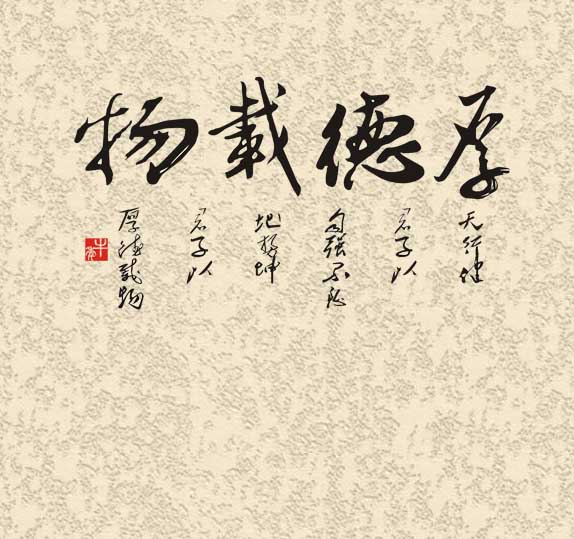 厚德載物
天行健
君子以
自强不息
地势坤
君子以
厚德载物